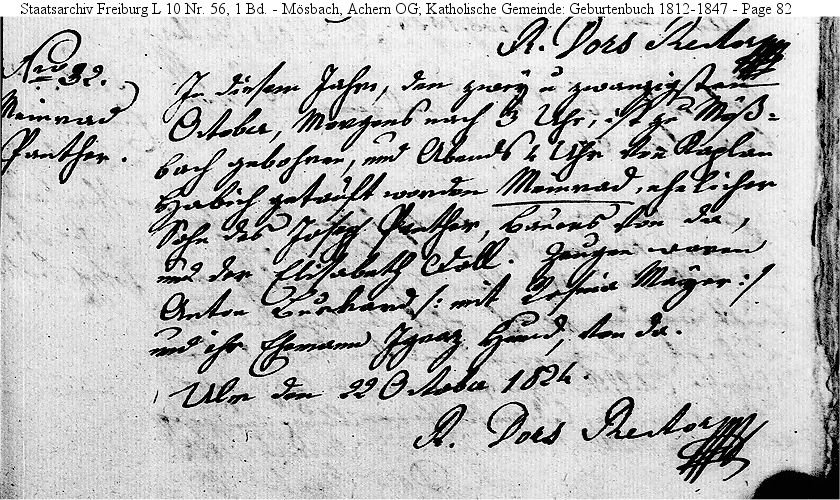 Staatsarchiv Freiburg L 10 Nr. 56, 1 Bd. - Mösbach, Achern OG; Katholische Gemeinde: Geburtenbuch 1812-1847 - Page 82
R. Dors Rector
Nro 32.
Meinrad
Panther.
In diesem Jahr, den zwey u zwanzigsten
October, Morgens nach 3 Uhr, ist zu Möß=
bach gebohren, und Abends 4 Uhr von Kaplan
Habich getauft worden Meinrad, ehelicher
Sohn des Joseph Panther, Bauers von da,
und der Elisabeth Doll. Zeugen waren
Anton Burkard /: mit Mayer :/
und ihr Ehemann Ignaz Hund, von da.
Ulm den 22 October 1824.
R. Dors Rector